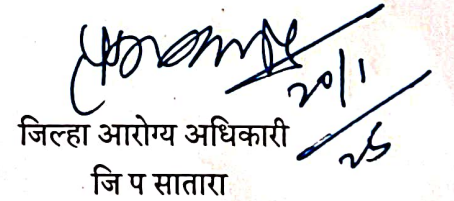 20/1
25
जिल्हा आरोग्य अधिकारी
जि प सातारा